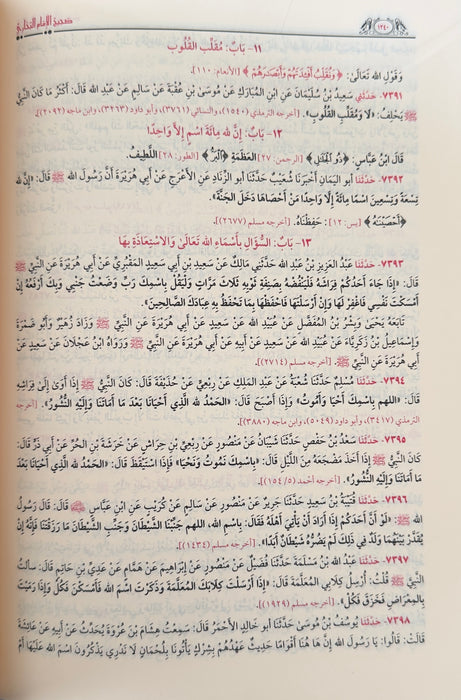 صحيح الإمام البخاري
١٢٤٠
١١- بَابُ: مُقَلِّبِ القُلُوبِ
وَقَوْلِ الله تَعَالَىٰ: ﴿وَنُقَلِّبُ أَفْئِدَتَهُمْ وَأَبْصَارَهُمْ﴾ [الأنعام: ١١٠].
٧٣٩١- حَدَّثَنِي سَعِيدُ بْنُ سُلَيْمَانَ عَنِ ابْنِ المُبَارَكِ عَنْ مُوسَىٰ بْنِ عُقْبَةَ عَنْ سَالِمٍ عَنْ عَبْدِ الله قَالَ: أَكْثَرُ مَا كَانَ النَّبِيُّ ﷺ
يَحْلِفُ: «لا وَمُقَلِّبِ القُلُوبِ». [أخرجه الترمذي (١٥٤٠)، والنسائي (٣٧٦١)، وأبو داود (٣٢٦٣)، وابن ماجه (٢٠٩٢)].
١٢- بَابٌ: إِنَّ لله مِائَةَ اسْمٍ إِلَّا وَاحِدًا
قَالَ ابْنُ عَبَّاسٍ: ﴿ذُو الْجَلَالِ﴾ [الرحمن: ٢٧] العَظَمَةِ ﴿الْبَرُّ﴾ [الطور: ٢٨] اللَّطِيفُ.
٧٣٩٢- حَدَّثَنَا أَبُو اليَمَانِ أَخْبَرَنَا شُعَيْبٌ حَدَّثَنَا أَبُو الزِّنَادِ عَنِ الأَعْرَجِ عَنْ أَبِي هُرَيْرَةَ أَنَّ رَسُولَ الله ﷺ قَالَ: «إِنَّ لله
تِسْعَةً وَتِسْعِينَ اسْمًا مِائَةً إِلَّا وَاحِدًا مَنْ أَحْصَاهَا دَخَلَ الجَنَّةَ».
﴿أَحْصَيْنَاهُ﴾ [يس: ١٢]: حَفِظْنَاهُ. [أخرجه مسلم (٢٦٧٧)].
١٣- بَابُ: السُّؤَالِ بِأَسْمَاءِ الله تَعَالَىٰ وَالاسْتِعَاذَةِ بِهَا
٧٣٩٣- حَدَّثَنَا عَبْدُ العَزِيزِ بْنُ عَبْدِ الله حَدَّثَنِي مَالِكٌ عَنْ سَعِيدِ بْنِ أَبِي سَعِيدٍ المَقْبُرِيِّ عَنْ أَبِي هُرَيْرَةَ عَنِ النَّبِيِّ ﷺ
قَالَ: «إِذَا جَاءَ أَحَدُكُمْ فِرَاشَهُ فَلْيَنْفُضْهُ بِصَنِفَةِ ثَوْبِهِ ثَلَاثَ مَرَّاتٍ وَلْيَقُلْ بِاسْمِكَ رَبِّ وَضَعْتُ جَنْبِي وَبِكَ أَرْفَعُهُ إِنْ
أَمْسَكْتَ نَفْسِي فَاغْفِرْ لَهَا وَإِنْ أَرْسَلْتَهَا فَاحْفَظْهَا بِمَا تَحْفَظُ بِهِ عِبَادَكَ الصَّالِحِينَ».
تَابَعَهُ يَحْيَىٰ وَبِشْرُ بْنُ المُفَضَّلِ عَنْ عُبَيْدِ الله عَنْ سَعِيدٍ عَنْ أَبِي هُرَيْرَةَ عَنِ النَّبِيِّ ﷺ وَزَادَ زُهَيْرٌ وَأَبُو ضَمْرَةَ
وَإِسْمَاعِيلُ بْنُ زَكَرِيَّاءَ عَنْ عُبَيْدِ الله عَنْ سَعِيدٍ عَنْ أَبِيهِ عَنْ أَبِي هُرَيْرَةَ عَنِ النَّبِيِّ ﷺ وَرَوَاهُ ابْنُ عَجْلَانَ عَنْ سَعِيدٍ
عَنْ أَبِي هُرَيْرَةَ عَنِ النَّبِيِّ ﷺ. [أخرجه مسلم (٢٧١٤)].
٧٣٩٤- حَدَّثَنَا مُسْلِمٌ حَدَّثَنَا شُعْبَةُ عَنْ عَبْدِ المَلِكِ عَنْ رِبْعِيٍّ عَنْ حُذَيْفَةَ قَالَ: كَانَ النَّبِيُّ ﷺ إِذَا أَوَىٰ إِلَىٰ فِرَاشِهِ
قَالَ: «اللهم بِاسْمِكَ أَحْيَا وَأَمُوتُ»، وَإِذَا أَصْبَحَ قَالَ: «الحَمْدُ لله الَّذِي أَحْيَانَا بَعْدَ مَا أَمَاتَنَا وَإِلَيْهِ النُّشُورُ». [أخرجه
الترمذي (٣٤١٧)، وأبو داود (٥٠٤٩)، وابن ماجه (٣٨٨٠)].
٧٣٩٥- حَدَّثَنَا سَعْدُ بْنُ حَفْصٍ حَدَّثَنَا شَيْبَانُ عَنْ مَنْصُورٍ عَنْ رِبْعِيِّ بْنِ حِرَاشٍ عَنْ خَرَشَةَ بْنِ الحُرِّ عَنْ أَبِي ذَرٍّ قَالَ:
كَانَ النَّبِيُّ ﷺ إِذَا أَخَذَ مَضْجَعَهُ مِنَ اللَّيْلِ قَالَ: «بِاسْمِكَ نَمُوتُ وَنَحْيَا» فَإِذَا اسْتَيْقَظَ قَالَ: «الحَمْدُ لله الَّذِي أَحْيَانَا بَعْدَ
مَا أَمَاتَنَا وَإِلَيْهِ النُّشُورُ». [أخرجه أحمد (٥/ ١٥٤)].
٧٣٩٦- حَدَّثَنَا قُتَيْبَةُ بْنُ سَعِيدٍ حَدَّثَنَا جَرِيرٌ عَنْ مَنْصُورٍ عَنْ سَالِمٍ عَنْ كُرَيْبٍ عَنِ ابْنِ عَبَّاسٍ قَالَ: قَالَ رَسُولُ
الله ﷺ: «لَوْ أَنَّ أَحَدَكُمْ إِذَا أَرَادَ أَنْ يَأْتِيَ أَهْلَهُ فَقَالَ: بِاسْمِ الله، اللهم جَنِّبْنَا الشَّيْطَانَ وَجَنِّبِ الشَّيْطَانَ مَا رَزَقْتَنَا فَإِنَّهُ إِنْ
يُقَدَّرْ بَيْنَهُمَا وَلَدٌ فِي ذَلِكَ لَمْ يَضُرَّهُ شَيْطَانٌ أَبَدًا». [أخرجه مسلم (١٤٣٤)].
٧٣٩٧- حَدَّثَنَا عَبْدُ الله بْنُ مَسْلَمَةَ حَدَّثَنَا فُضَيْلٌ عَنْ مَنْصُورٍ عَنْ إِبْرَاهِيمَ عَنْ هَمَّامٍ عَنْ عَدِيِّ بْنِ حَاتِمٍ قَالَ: سَأَلْتُ
النَّبِيَّ ﷺ قُلْتُ: أُرْسِلُ كِلَابِي المُعَلَّمَةَ قَالَ: «إِذَا أَرْسَلْتَ كِلَابَكَ المُعَلَّمَةَ وَذَكَرْتَ اسْمَ الله فَأَمْسَكْنَ فَكُلْ وَإِذَا رَمَيْتَ
بِالمِعْرَاضِ فَخَزَقَ فَكُلْ». [أخرجه مسلم (١٩٢٩)].
٧٣٩٨- حَدَّثَنَا يُوسُفُ بْنُ مُوسَىٰ حَدَّثَنَا أَبُو خَالِدٍ الأَحْمَرُ قَالَ: سَمِعْتُ هِشَامَ بْنَ عُرْوَةَ يُحَدِّثُ عَنْ أَبِيهِ عَنْ عَائِشَةَ
قَالَتْ: قَالُوا: يَا رَسُولَ الله إِنَّ هَا هُنَا أَقْوَامًا حَدِيثٌ عَهْدُهُمْ بِشِرْكٍ يَأْتُونَا بِلُحْمَانٍ لَا نَدْرِي يَذْكُرُونَ اسْمَ الله عَلَيْهَا أَمْ